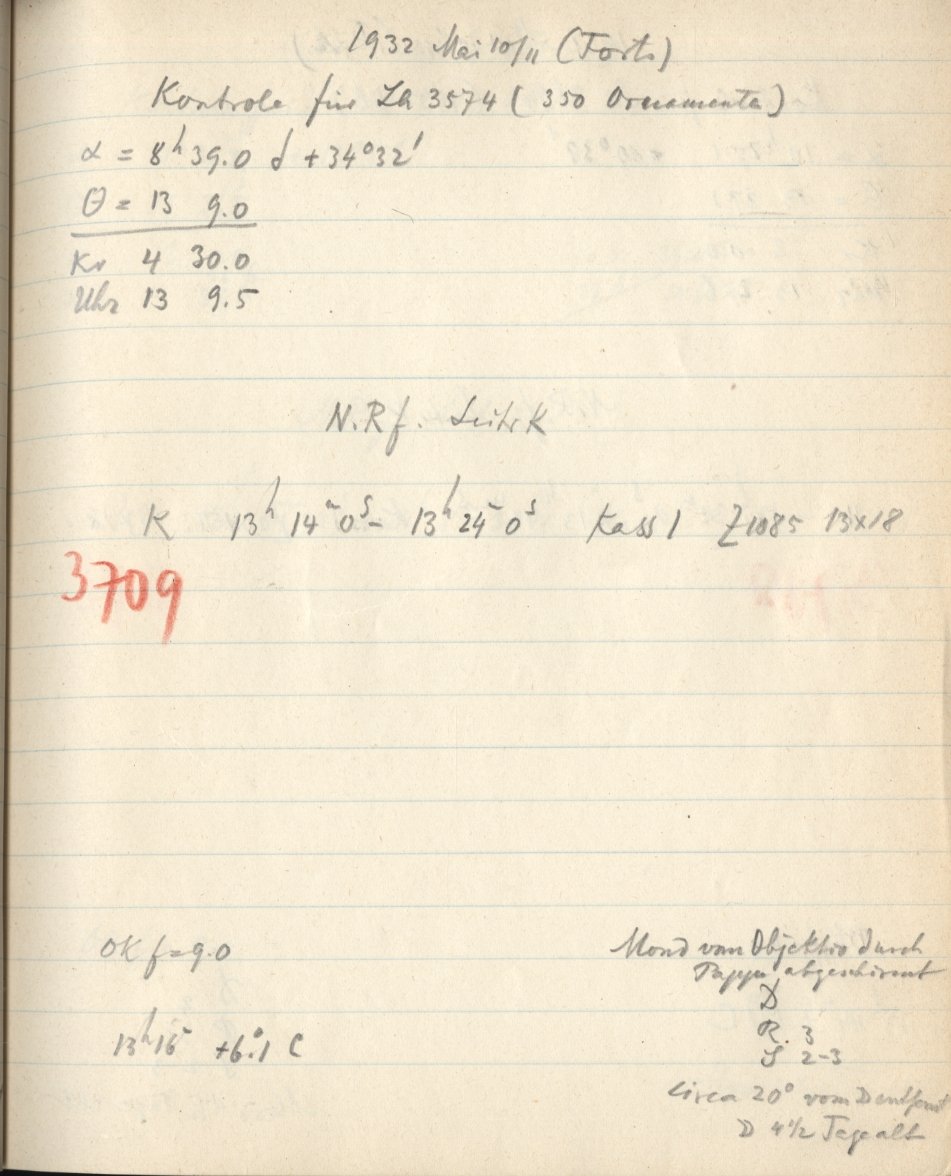 1932 Mai 10/11 (Forts)
Kontrole für La 3574 (350 Ornamenta)
α = 8ʰ39.0 δ +34°32'
θ = 13 9.0
Kr 4 30.0
Uhr 13 9.5
N.R f. K
K 13ʰ 14ᵐ 0ˢ - 13ʰ 24ᵐ 0ˢ Kass 1 Z1085 13x18
3709
OK f=9.0
Mond vom Objektiv durch
Pappe abgeschirmt
R. 3
S 2-3
13ʰ16ᵐ +6°.1 C
Circa 20° vom D entfernt
D 4 1/2 Tage alt